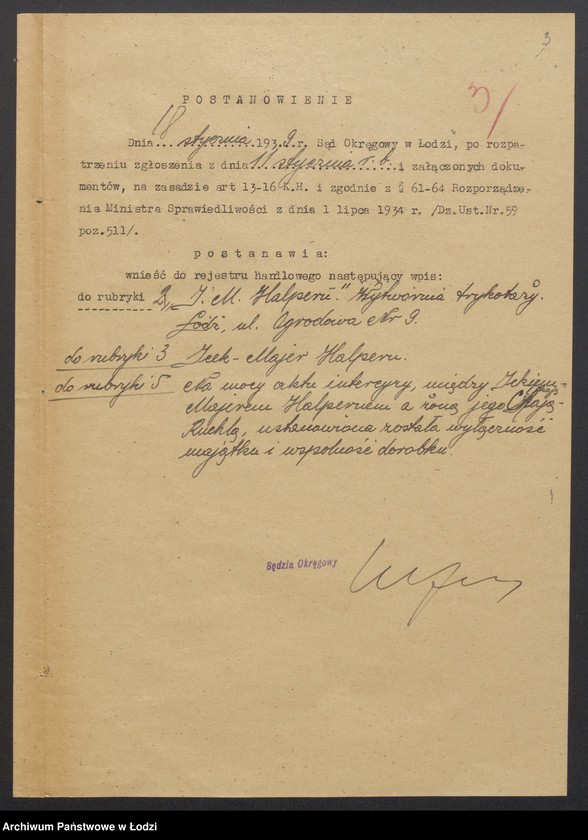 3
POSTANOWIENIE
Dnia 18 stycznia 1939 r. Sąd Okręgowy w Łodzi, po rozpa-
trzeniu zgłoszenia z dnia 11 stycznia r. b. i załączonych doku-
mentów, na zasadzie art 13-16 K.H. i zgodnie z § 61-64 Rozporządze-
nia Ministra Sprawiedliwości z dnia 1 lipca 1934 r. /Dz.Ust.Nr.59
poz.511/.
postanawia:
wnieść do rejestru handlowego następujący wpis:
do rubryki 2, "J. M. Halpern." Wytwórnia trykotaży.
Łódź, ul. Ogrodowa Nr 9.
do rubryki 3 Icek-Majer Halpern.
do rubryki 5 Na mocy aktu intercyzy, między Ickiem-
Majerem Halpernem a żoną jego Chają-
Ruchlą, ustanowiona została wyłączność
majątku i wspólność dorobku.
Sędzia Okręgowy
Archiwum Państwowe w Łodzi